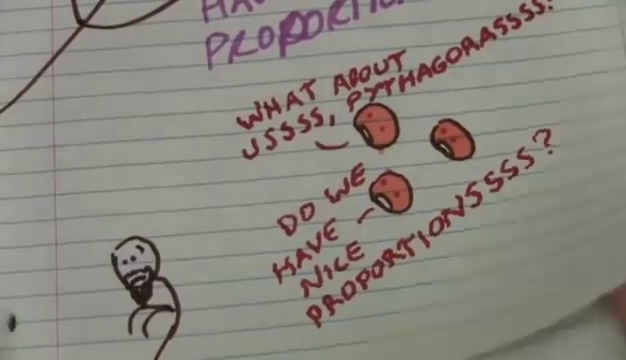 PROPORTIO
WHAT ABOUT
USSSS, PYTHAGORAASSSS?
DO WE
HAVE
NICE
PROPORTIONSSSS?